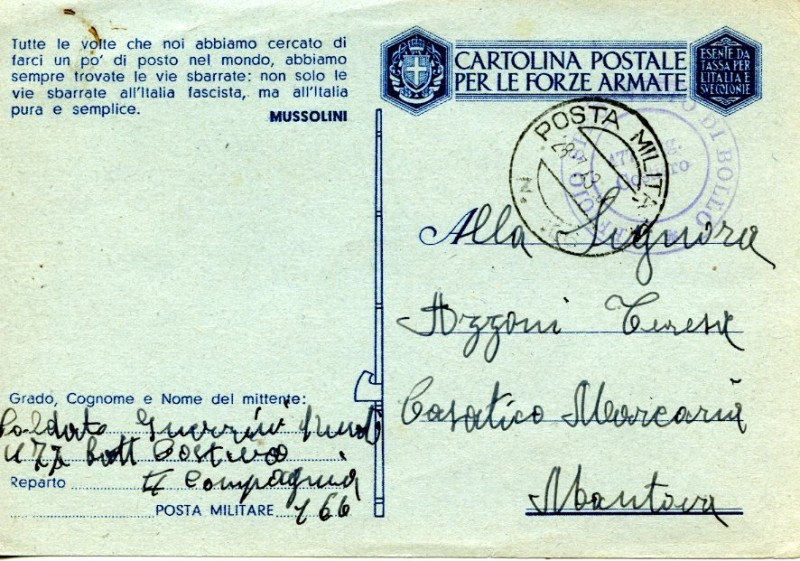 Tutte le volte che noi abbiamo cercato di
farci un po' di posto nel mondo, abbiamo
sempre trovate le vie sbarrate: non solo le
vie sbarrate all'Italia fascista, ma all'Italia
pura e semplice.
MUSSOLINI
CARTOLINA POSTALE
PER LE FORZE ARMATE
ESENTE DA
TASSA PER
L'ITALIA E
SVE COLONIE
POSTA MILITA
N.
DI BOLLO
Alla Signora
Azzoni Teresa
Casatico Marcaria
Mantova
Grado, Cognome e Nome del mittente:
Soldato Guerrini
477 Batt Costiero
Reparto II Compagnia
POSTA MILITARE 166